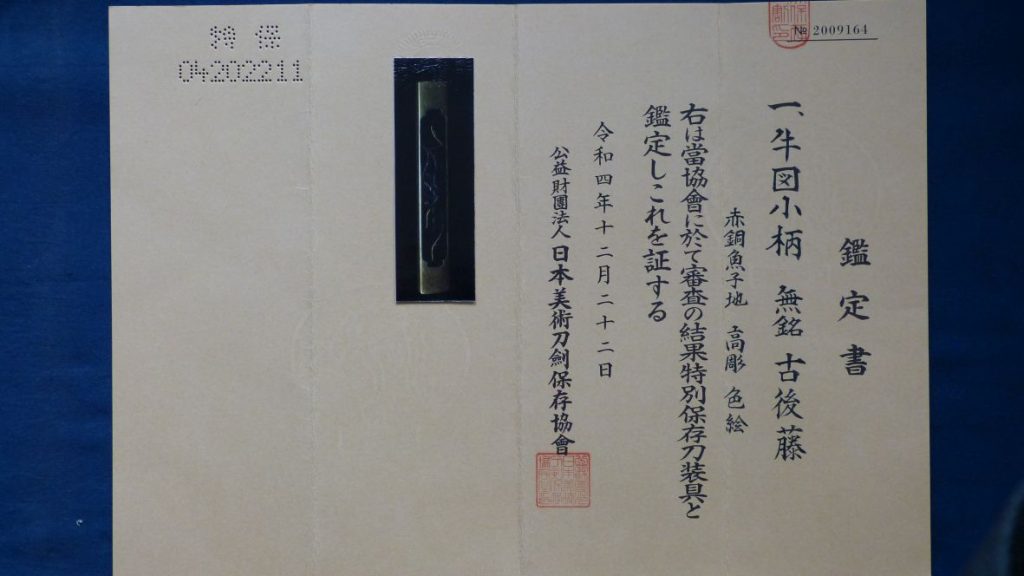 鑑定書
一、牛図小柄 無銘 古後藤
赤銅魚子地 高彫 色絵
右は當協會に於て審査の結果特別保存刀装具と
鑑定しこれを証する
令和四年十二月二十二日
公益財團法人 日本美術刀劍保存協會
№ 2009164
特保
04202211